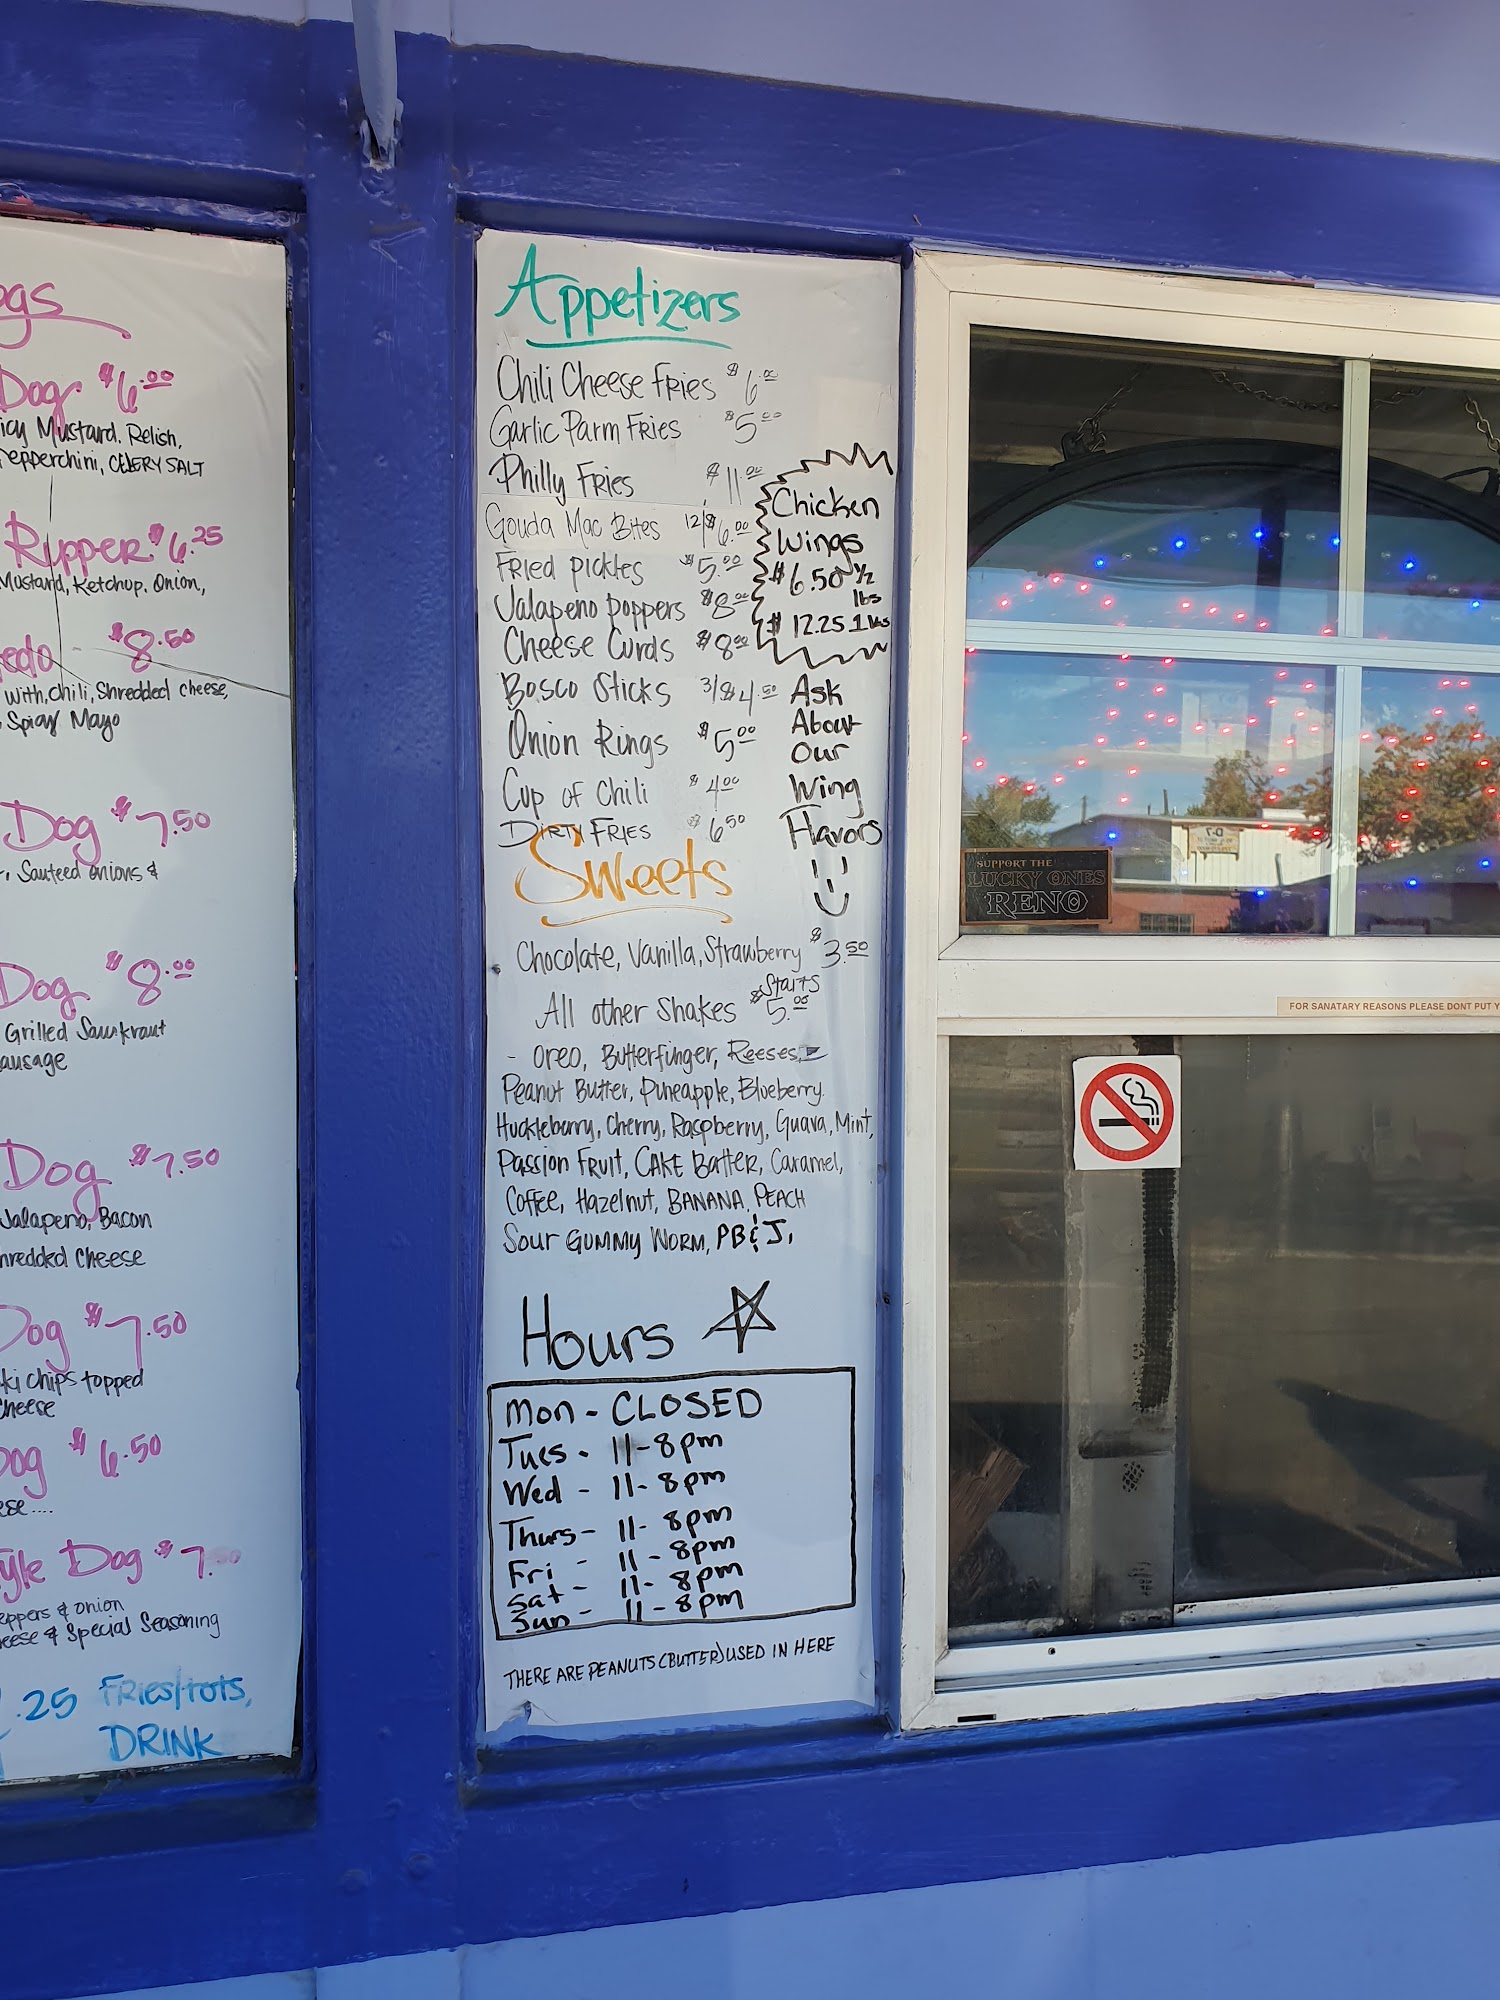 Dog $6.00
Mustard. Relish,
CELERY SALT
Ripper $6.25
Mustard, Ketchup. Onion,
$8.50
With, Chili, Shredded cheese,
Spicy Mayo
Dog $7.50
Sauteed onions &
Dog $8.00
Grilled Saurkraut
Dog $7.50
Jalapeno, Bacon
Cheese
Dog $7.50
chips topped
Cheese
$6.50
Dog $7.
& onion
& Special Seasoning
.25 Fries/tots,
DRINK
Appetizers
Chili Cheese Fries $6.00
Garlic Parm Fries $5.00
Philly Fries $11.00
Gouda Mac Bites 12/$6.00
Fried pickles $5.00
Jalapeno poppers $8.00
Cheese Curds $8.00
Bosco Sticks 3/$4.50
Onion Rings $5.00
Cup of Chili $4.00
DIRTY FRIES $6.50
Chicken
Wings
$6.50 ½
lbs
$12.25 1 lbs
Ask
About
Our
Wing
Flavors
Sweets
Chocolate, Vanilla, Strawberry $3.50
Starts
All other Shakes $5.00
- Oreo, Butterfinger, Reeses,
Peanut Butter, Pineapple, Blueberry.
Huckleberry, Cherry, Raspberry, Guava, Mint,
Passion Fruit, CAKE Batter, Caramel,
Coffee, Hazelnut, BANANA, PEACH
Sour GUMMY WORM, PB & J,
Hours
Mon - CLOSED
Tues - 11-8pm
Wed - 11-8pm
Thurs - 11-8pm
Fri - 11-8pm
Sat - 11-8pm
Sun - 11-8pm
THERE ARE PEANUTS (BUTTER) USED IN HERE
SUPPORT THE
LUCKY ONES
RENO
FOR SANATARY REASONS PLEASE DONT PUT